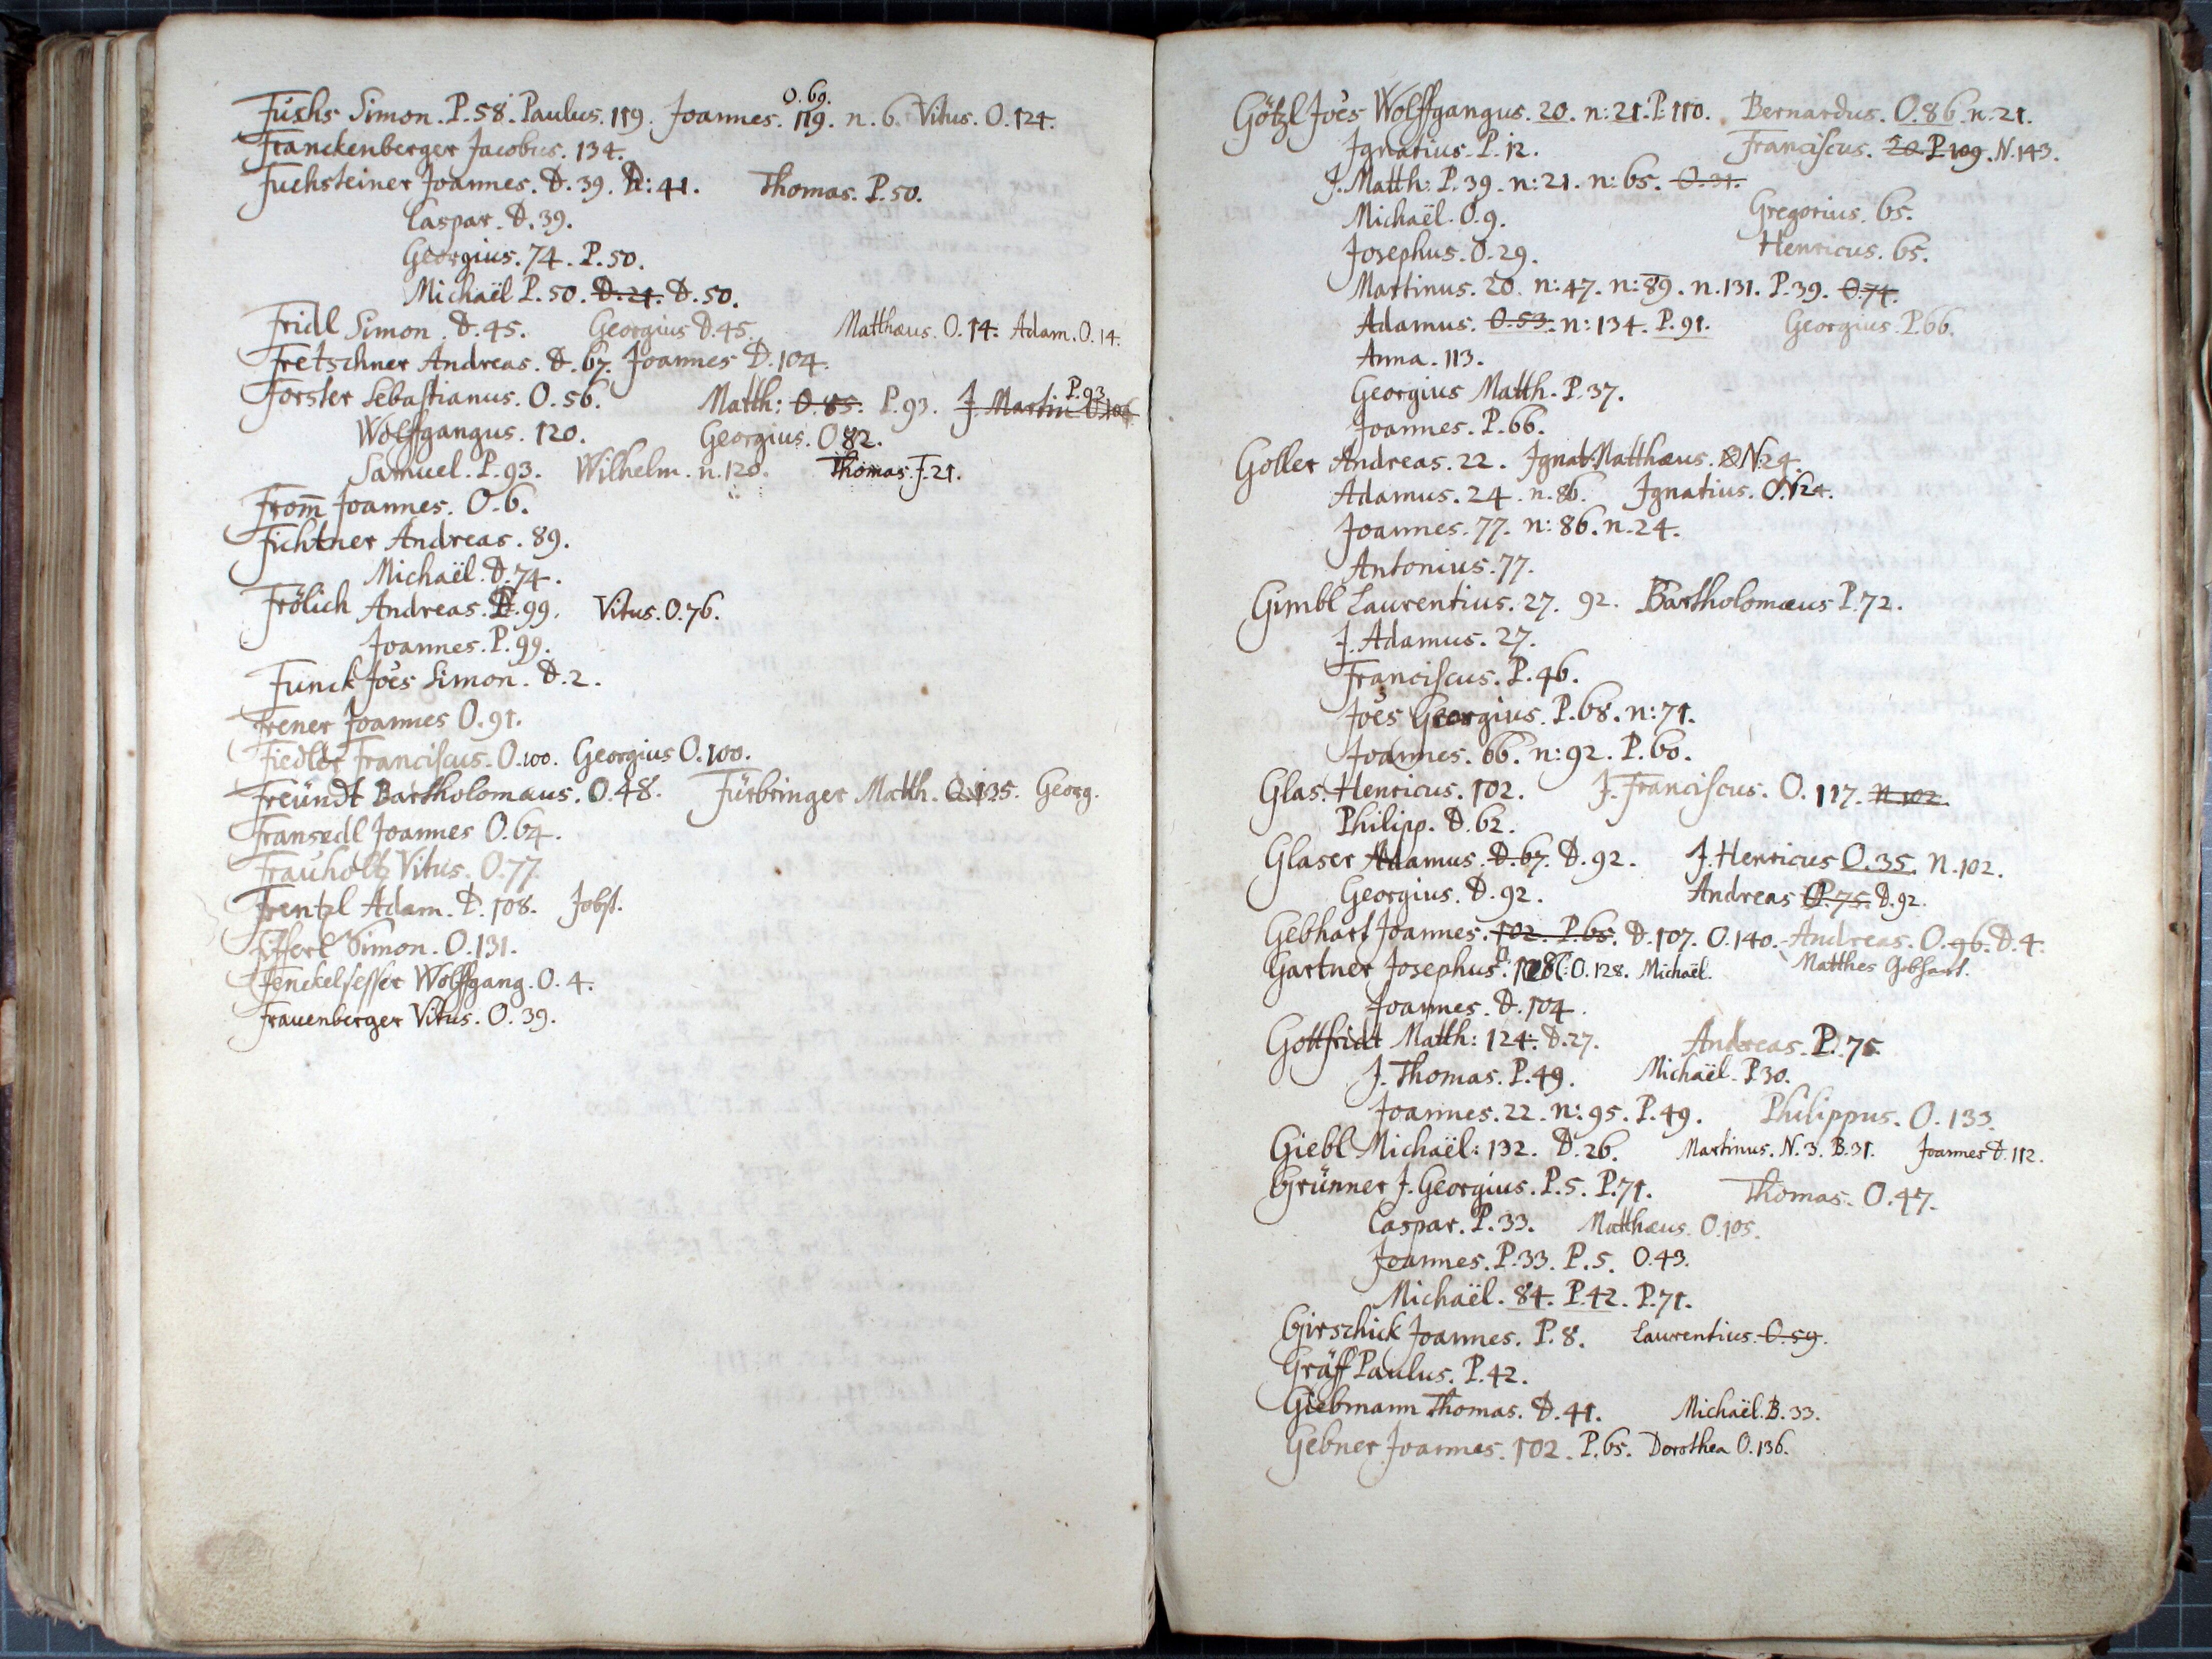 O. 69.
Fuchs Simon. P. 58. Paulus. 119. Joannes. 119. n. 6. Vitus. O. 124.
Franckenberger Jacobus. 134.
Fuchsteiner Joannes. D. 39. D: 41. Thomas. P. 50.
Caspar. D. 39.
Georgius. 74. P. 50.
Michaël P. 50. D. 21. D. 50.
Fridl Simon. D. 45. Georgius D. 45. Matthæus. O. 14. Adam. O. 14.
Fretschner Andreas. D. 67. Joannes D. 104.
P. 93
Forster Sebastianus. O. 56. Matth: O. 85. P. 93. J. Martin O. 106
Wolffgangus. 120. Georgius. O 82.
Samuel. P. 93. Wilhelm. n. 120. Thomas. J. 21.
From̅ Joannes. O. 6.
Fichtner Andreas. 89.
Michaël. D. 74.
Frölich Andreas. P. 99. Vitus. O. 76.
Joannes. P. 99.
Funck Joës Simon. D. 2.
Frener Joannes O. 91.
Fiedler Franciscus. O. 100. Georgius O. 100.
Freündt Bartholomæus. O. 48. Fürbringer Matth. O. 135. Georg.
Fransedl Joannes O. 64.
Frauholtz Vitus. O. 77.
Frentzl Adam. D. 108. Jobst.
Fifferl Simon. O. 131.
Fenckelsesser Wolffgang. O. 4.
Frauenberger Vitus. O. 39.
Götzl Joës Wolffgangus. 20. n: 21. P. 110. Bernardus. O. 86. n. 21.
Ignatius. P. 12. Franciscus. 20. P 109. N. 143.
J. Matth: P. 39. n: 21. n: 65. O. 31.
Michaël. O. 9. Gregorius. 65.
Josephus. O. 29. Henricus. 65.
Martinus. 20. n: 47. n: 89. n. 131. P. 39. O. 74.
Adamus. O. 53. n: 134. P. 91. Georgius. P. 66.
Anna. 113.
Georgius Matth. P. 37.
Joannes. P. 66.
Goller Andreas. 22. Ignat. Matthæus. N. 24.
Adamus. 24. n. 86. Ignatius. O. 124.
Joannes. 77. n: 86. n. 24.
Antonius. 77.
Gimbl Laurentius. 27. 92. Bartholomæus P. 72.
J. Adamus. 27.
Franciscus. P. 46.
Joës Georgius. P. 68. n: 71.
Joannes. 66. n: 92. P. 60.
Glas. Henricus. 102. J. Franciscus. O. 117. n. 102.
Philipp. D. 62.
Glaser Adamus. D. 67. D. 92. J. Henricus O. 35. N. 102.
Georgius. D. 92. Andreas P. 75. D. 92.
Gebhart Joannes. 102. P. 65. D. 107. O. 140. Andreas. O. 96. D. 4.
Gartner Josephus. O. 128. Michaël. Matthes Gebhart.
Joannes. D. 104.
Gottfridt Matth: 124. D. 27. Andreas. P. 75.
J. Thomas. P. 49. Michaël. P. 30.
Joannes. 22. n: 95. P. 49. Philippus. O. 133.
Giebl Michaël: 132. D. 26. Martinus. N. 3. B. 31. Joannes D. 112.
Grünner J. Georgius. P. 5. P. 71. Thomas. O. 47.
Caspar. P. 33. Matthæus. O. 105.
Joannes. P. 33. P. 5. O. 43.
Michaël. 84. P. 42. P. 71.
Girschick Joannes. P. 8. Laurentius. O. 59.
Gräff Paulus. P. 42.
Giebmann Thomas. D. 41. Michaël. B. 33.
Gebner Joannes. 102. P. 65. Dorothea O. 136.